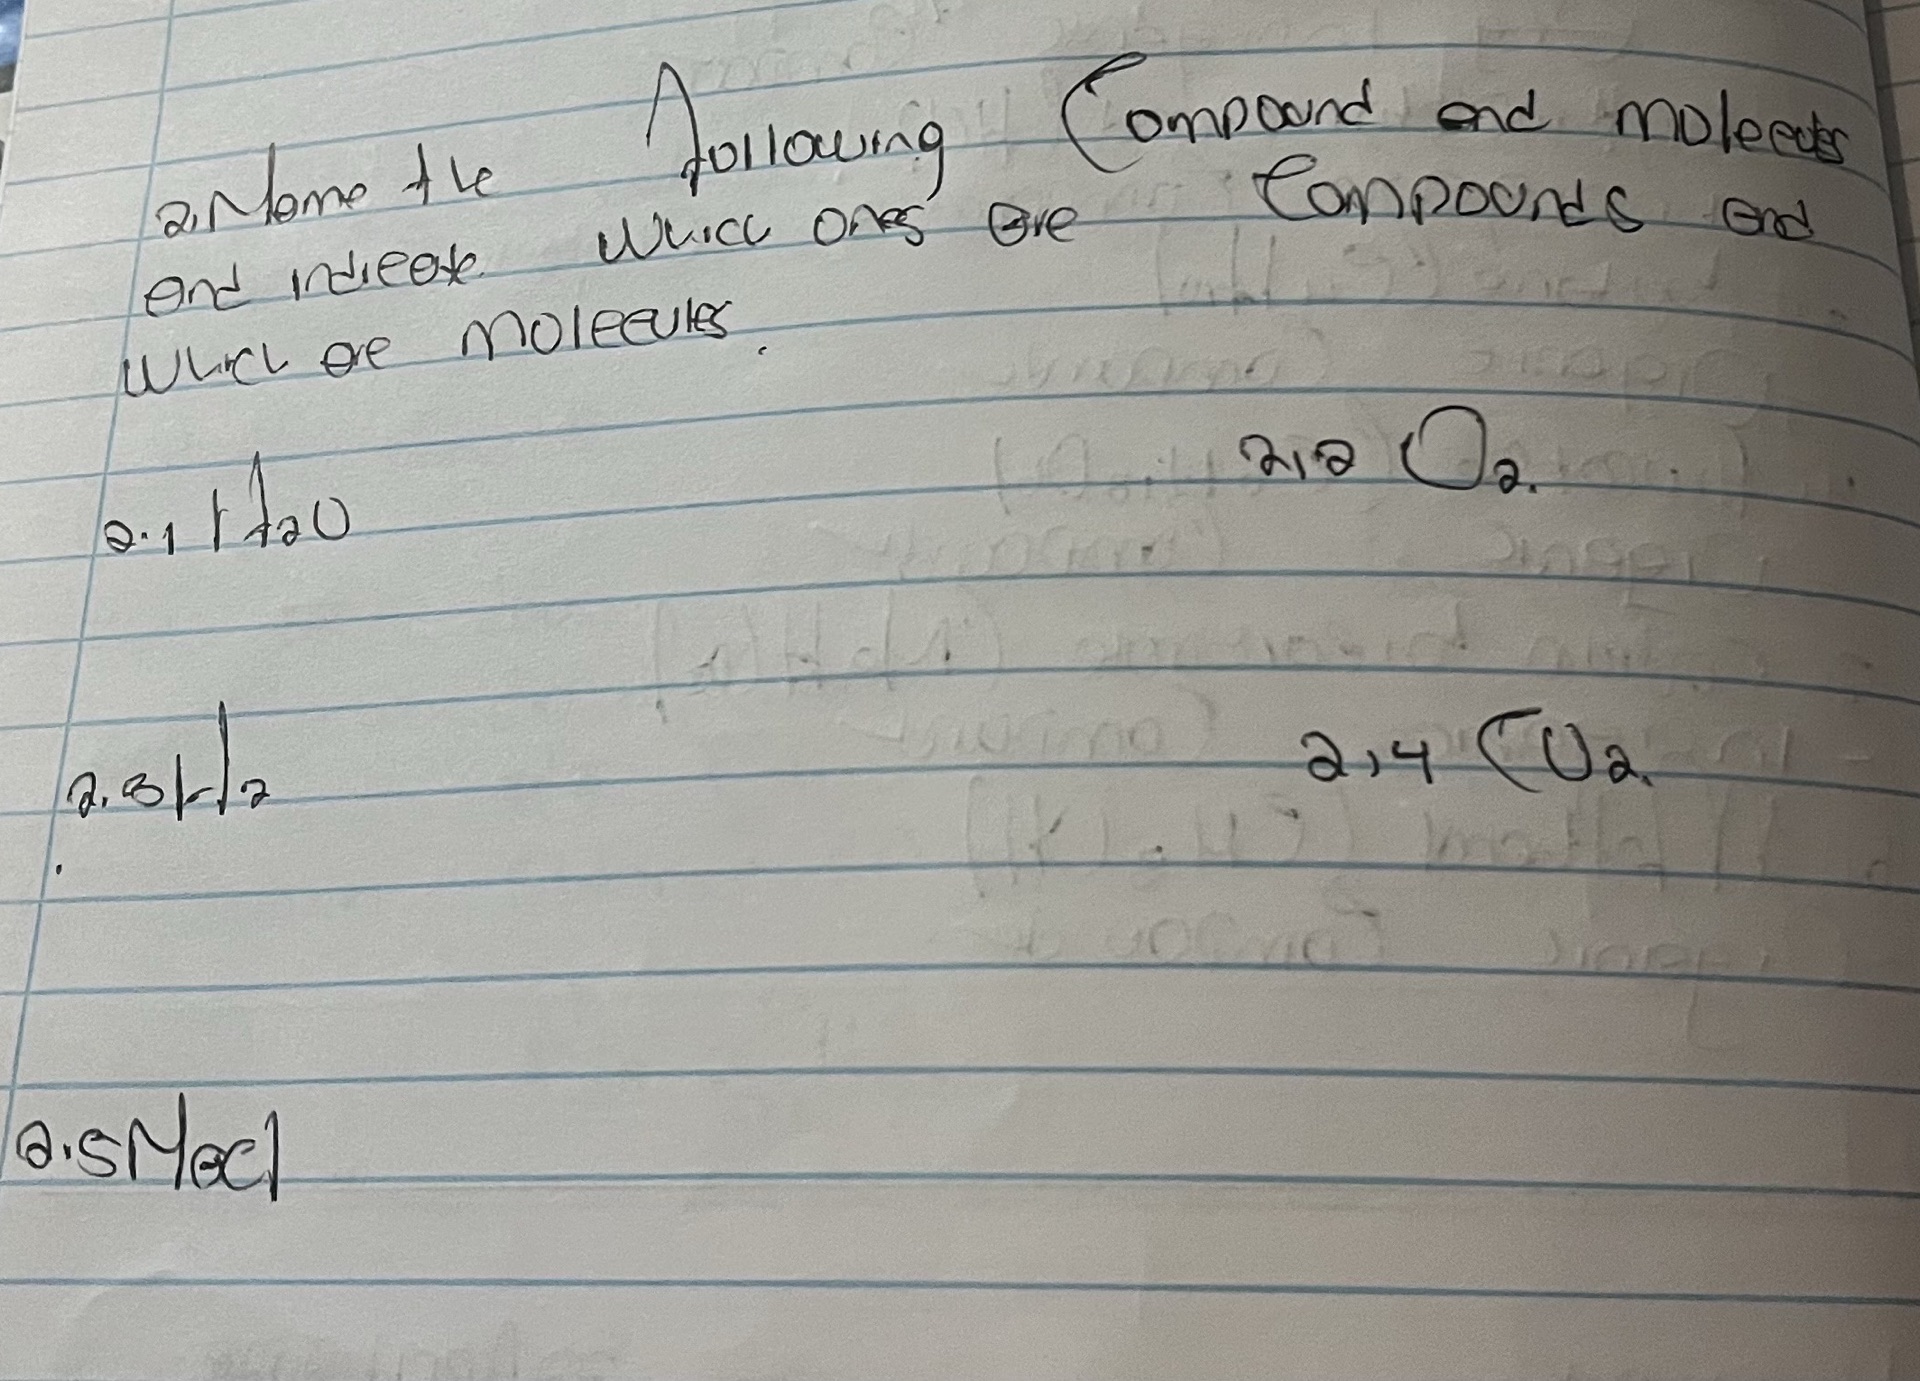 2. Name the following Compound and molecules
and indicate which ones are Compounds and
which are molecules.
2.1 H2O 2.2 O2.
2.3 H2 2.4 CO2.
2.5 NaCl